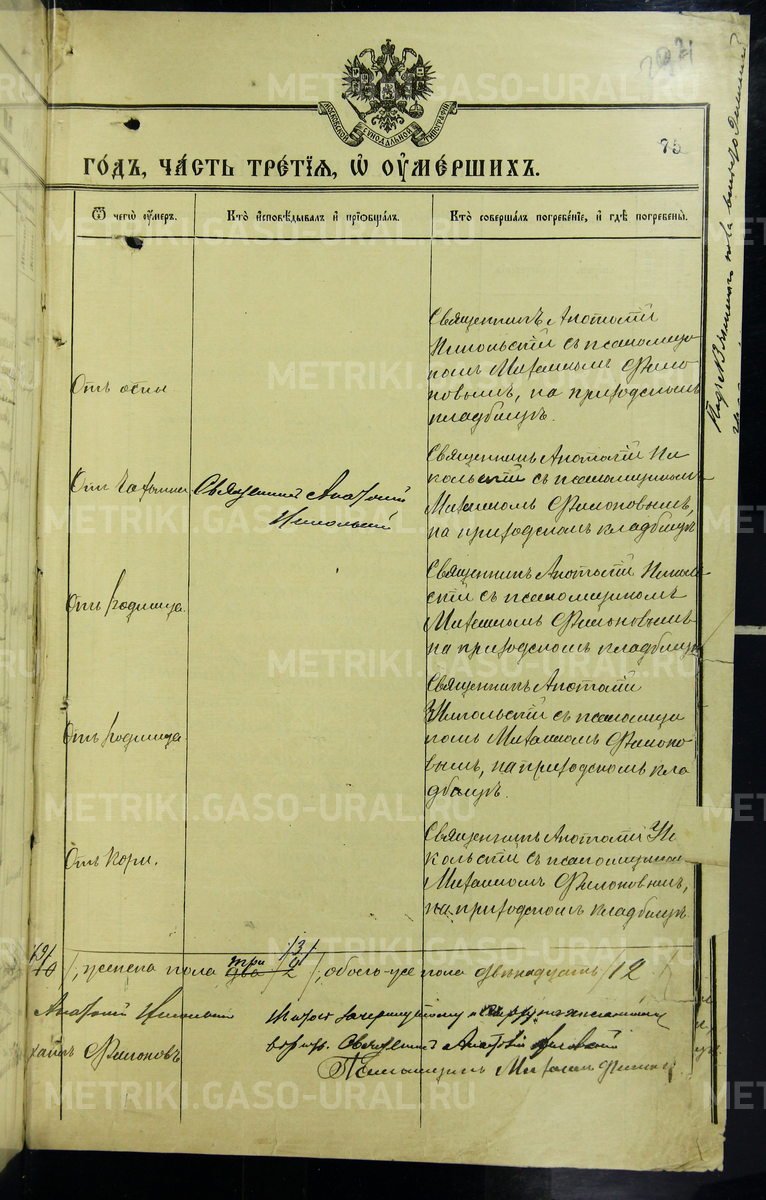 МОСКОВСКОЙ СѴНОДАЛЬНОЙ ТИПОГРАФІИ
75
ГОДЪ, ЧАСТЬ ТРЕТІЯ, Ѡ ОУМЕРШИХЪ.
Ѿ чегѡ оумеръ.
Кто исповѣдывалъ и пріобщалъ.
Кто совершалъ погребеніе, и гдѣ погребены.
Отъ оспы
Священникъ Анатолій
Никольскій съ псаломщи
комъ Михаиломъ Филоно
новымъ, на приходскомъ
кладбищѣ.
Отъ чахотки
Священникъ Анатолій
Никольскій
Священникъ Анатолій Ни
кольскій съ псаломщикомъ
Михаиломъ Филоновымъ,
на приходскомъ кладбищѣ
Отъ родимца.
Священникъ Анатолій Николь
скій съ псаломщикомъ
Михаиломъ Филоновымъ
на приходскомъ кладбищѣ
Отъ родимца.
Священникъ Анатолій
Никольскій съ псаломщи
комъ Михаиломъ Филоно
вымъ, на приходскомъ кла
дбищѣ.
Отъ кори.
Священникъ Анатолій Ни
кольскій съ псаломщикомъ
Михаиломъ Филоновымъ,
на приходскомъ кладбищѣ
10/, женска пола два три /3/ 2/, обоего-же пола двѣнадцать /12
Анатолій Никольскій
хаилъ Филоновъ
вѣрно. Священникъ Анатолій Никольскій
Псаломщикъ Михаилъ Филоновъ.
METRIKI.GASO-URAL.RU